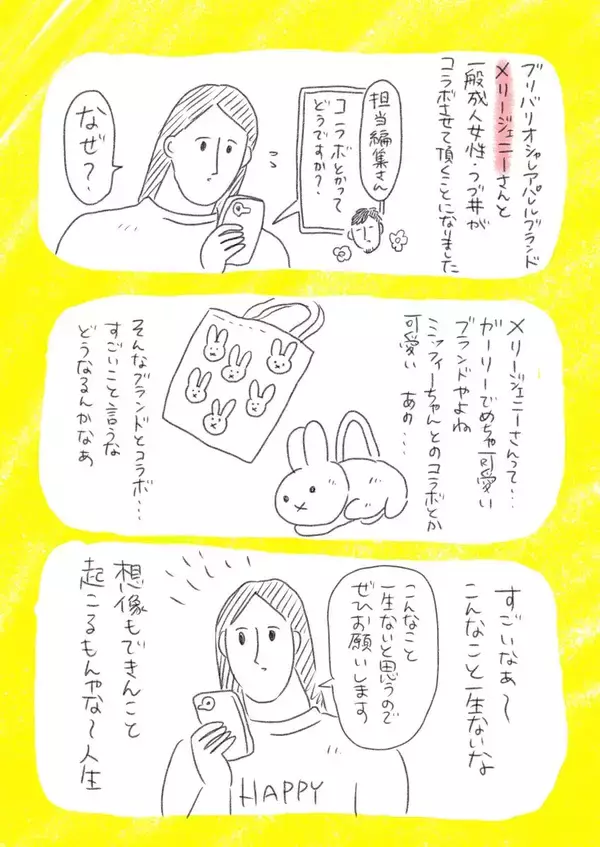 ブリバリオシャレアパレルブランド
メリージェニーさんと
一般成人女性・うづ井が
コラボさせて頂くことになりました
担当編集さん
コラボとかって
どうですか？
なぜ？
メリージェニーさんって…
ガーリーでめちゃ可愛い
ブランドやよね
ミッフィーちゃんとのコラボとか
可愛い あの…
そんなブランドとコラボ…
すごいこと言うな
どうなるんかなあ
すごいなぁ〜
こんなこと一生ないな
こんなこと
一生ないと思うので
ぜひお願いします
想像もできんこと
起こるもんやな〜人生
HAPPY